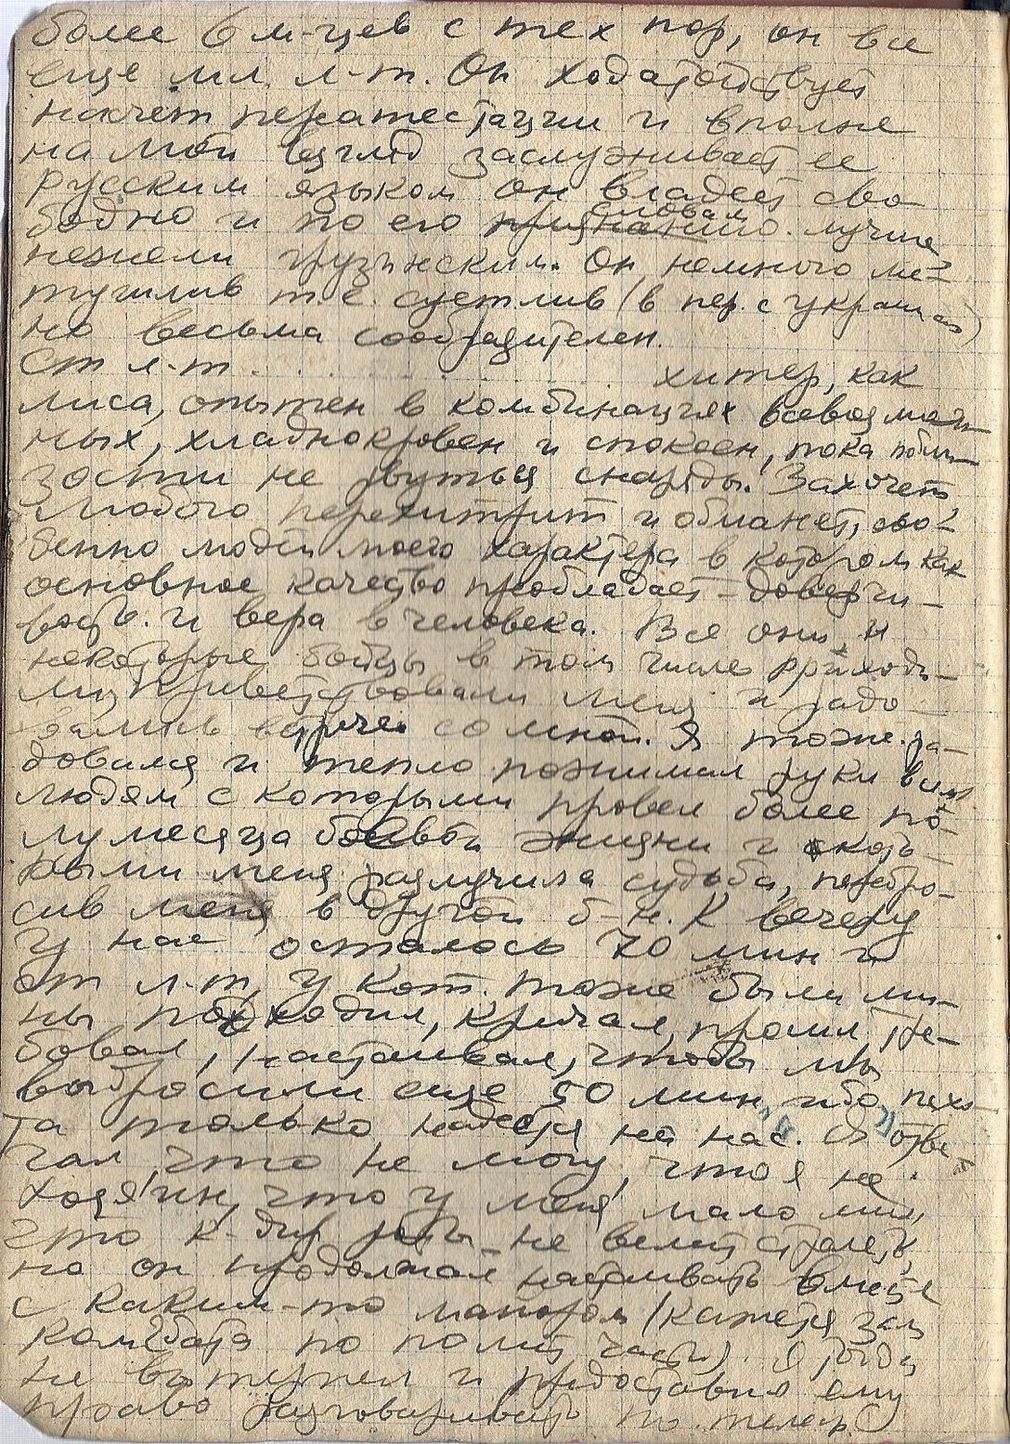 более 6 м-цев с тех пор, он все
еще мл. л-т. Он ходатайствует
насчет переатестации и вполне
на мой взгляд заслуживает ее
русским языком он владеет сво-
бодно и по его словам лучше
нежели грузинским. Он немного ме-
тушлив т.е. суетлив (в пер. с украинск)
но весьма сообразителен.
Ст л-т . . . . . . . . . . хитер, как
лиса, опытен в комбинациях всевозмож-
ных, хладнокровен и спокоен, пока побли-
зости не рвуться снаряды. Захочет
любого перехитрит и обманет, осо-
бенно людей моего характера в котором как
основное качество преобладает – доверчи-
вость. и вера в человека. Все они, и
некоторые бойцы в том числе приходи-
ли, приветствовали меня и радо-
вались встрече со мной. Я тоже ра-
довался и тепло пожимал руки всем
людям с которыми провел более по-
лумесяца боевой жизни и с кото-
рыми меня разлучила судьба, перебро-
сив меня в другой б-н. К вечеру
у нас осталось 70 мин и
ст л-т, у кот. тоже были ми-
ны подходил, кричал, просил, тре-
бовал, настаивал, чтобы мы
выбросили еще 50 мин ибо пехо-
та только надеется на нас. Я отве-
чал, что не могу, что я не
хозяин, что у меня мало мин,
что к-дир роты не велит стрелять,
но он продолжал настаивать вместе
с каким-то майором (кажется зам
комбата по полит части). Я тогда
не вытерпел и предоставил ему
право разговаривать по телеф.